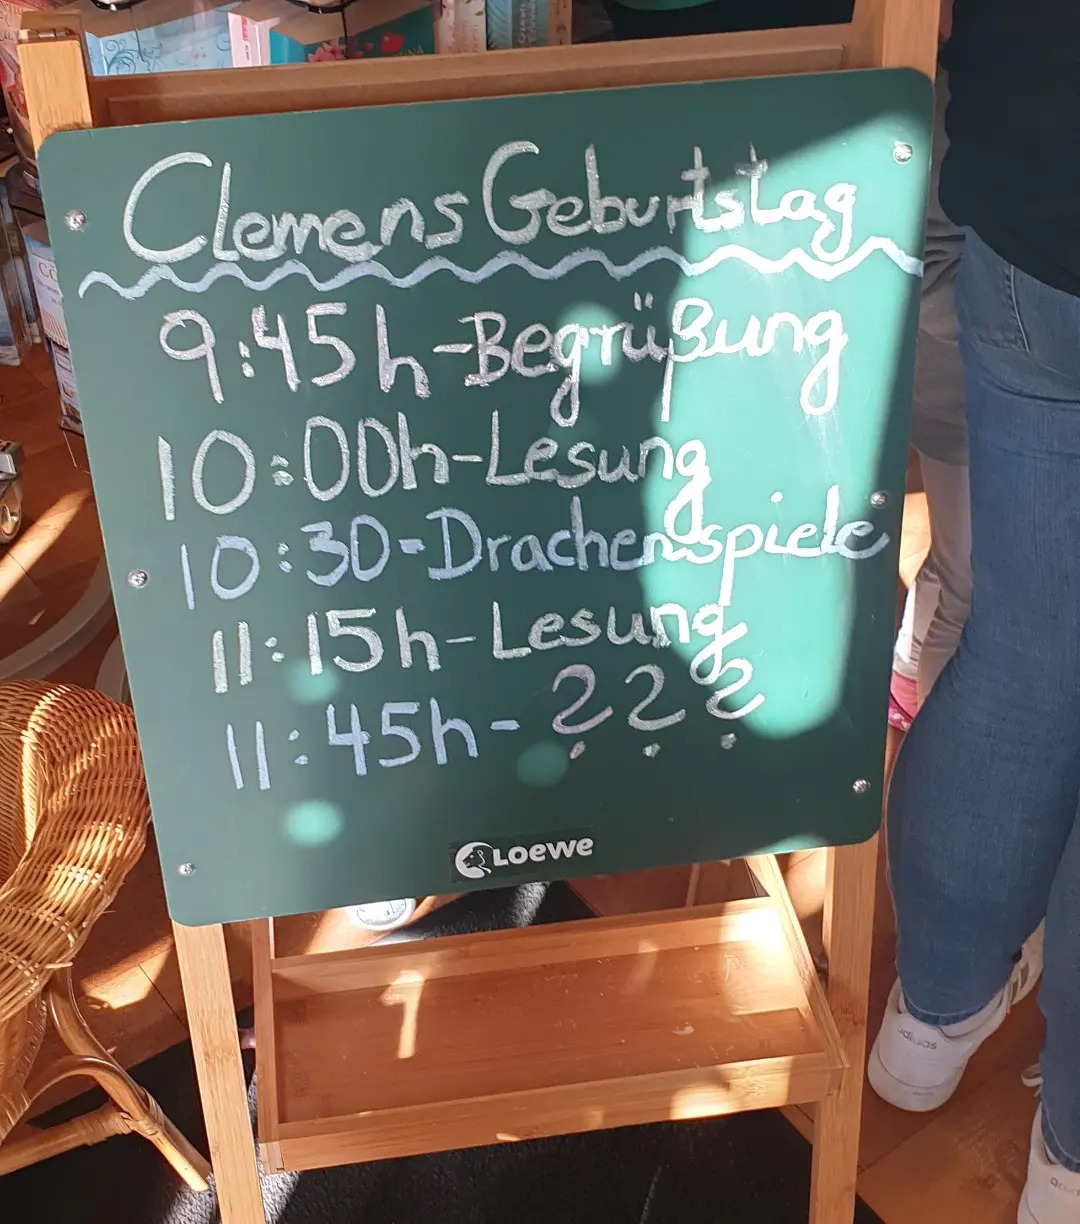 Clemens Geburtstag
9:45h-Begrüßung
10:00h-Lesung
10:30-Drachenspiele
11:15h-Lesung
11:45h-???
LOEWE
adidas